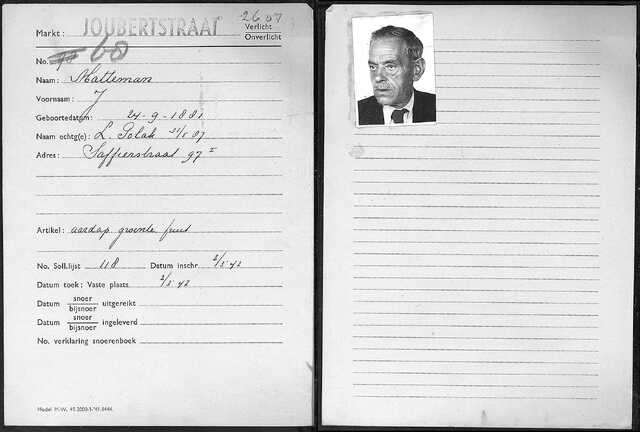 Markt: JOUBERTSTRAAT 2607
Verlicht
Onverlicht
No. 60
Naam: Matteman
Voornaam: J
Geboortedatum: 24-9-1881
Naam echtg(e): L. Polak 31/5 07
Adres: Saffierstraat 97 I
Artikel: aardap. groente fruit
No. Soll.lijst 118 Datum inschr. 2/5 42
Datum toek: Vaste plaats. 2/5 42
Datum snoer/bijsnoer uitgereikt
Datum snoer/bijsnoer ingeleverd
No. verklaring snoerenboek
Model M.W.